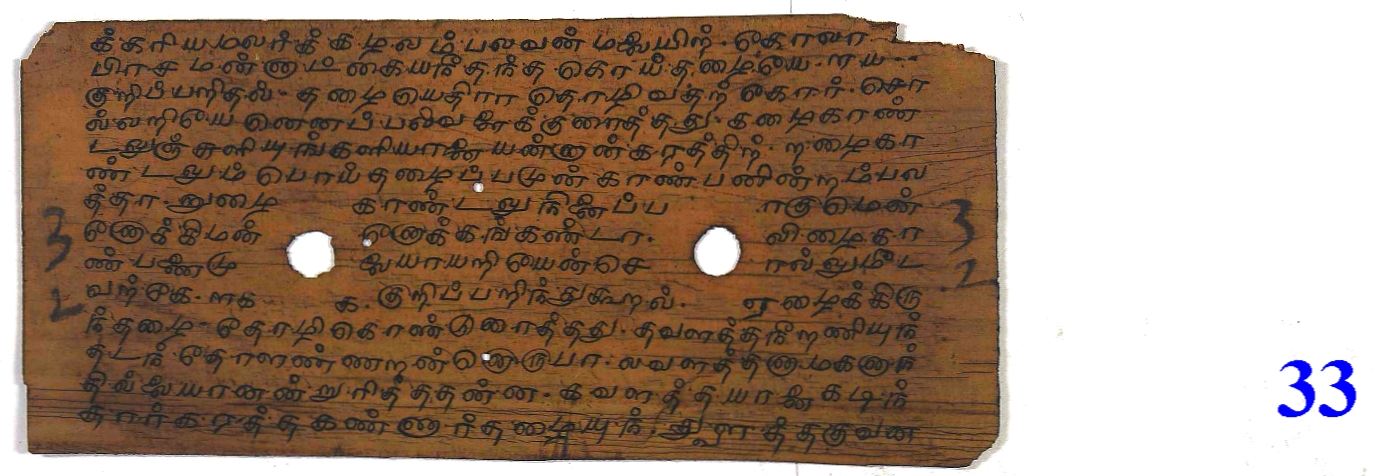 க்கரியமலர்க் கழலம்பலவன் மலையிற். கோலா
பிரசமன்னாட் கையநீதந்த கொய்தழையே. ஈய
குறிப்பறிதல். தழையெதிரா தொழிவதற் கோர். சொ
ல்லறியே னெனப்பல்வரைக்குரைத்தது. கழைகாண்
டலுஞ்சுளியுங்களியானை யன்னான்கரத்திற். றழைகா
ண்டலும்பொய்தழைப்பமுன்காண்பனின்றம்பல
த்தா. னுழை காண்டலுநினைப்பா ாகுமென்
னோக்கிமன் னோக்கங்கண்டா. லிழைகா
ண்பணைமு லையாயறியேன்சொ ால்லுமீட
வற்கே. ாக க. குறிப்பறிந்துகூறல். ஏழைக்கிரு
ந்தழை தோழிகொண்டுரைத்தது. தவளத்தநீறணியுந்
தடந் தோளண்ணறன்னொருபா. லவளத்தனாமகனாந்
தில்லையானன் றுரித்ததன்ன. கவளத்தயானைகடிந்
தார்கரத்தகண்ணார்ந்தழையுந். துவளத்தகுவன